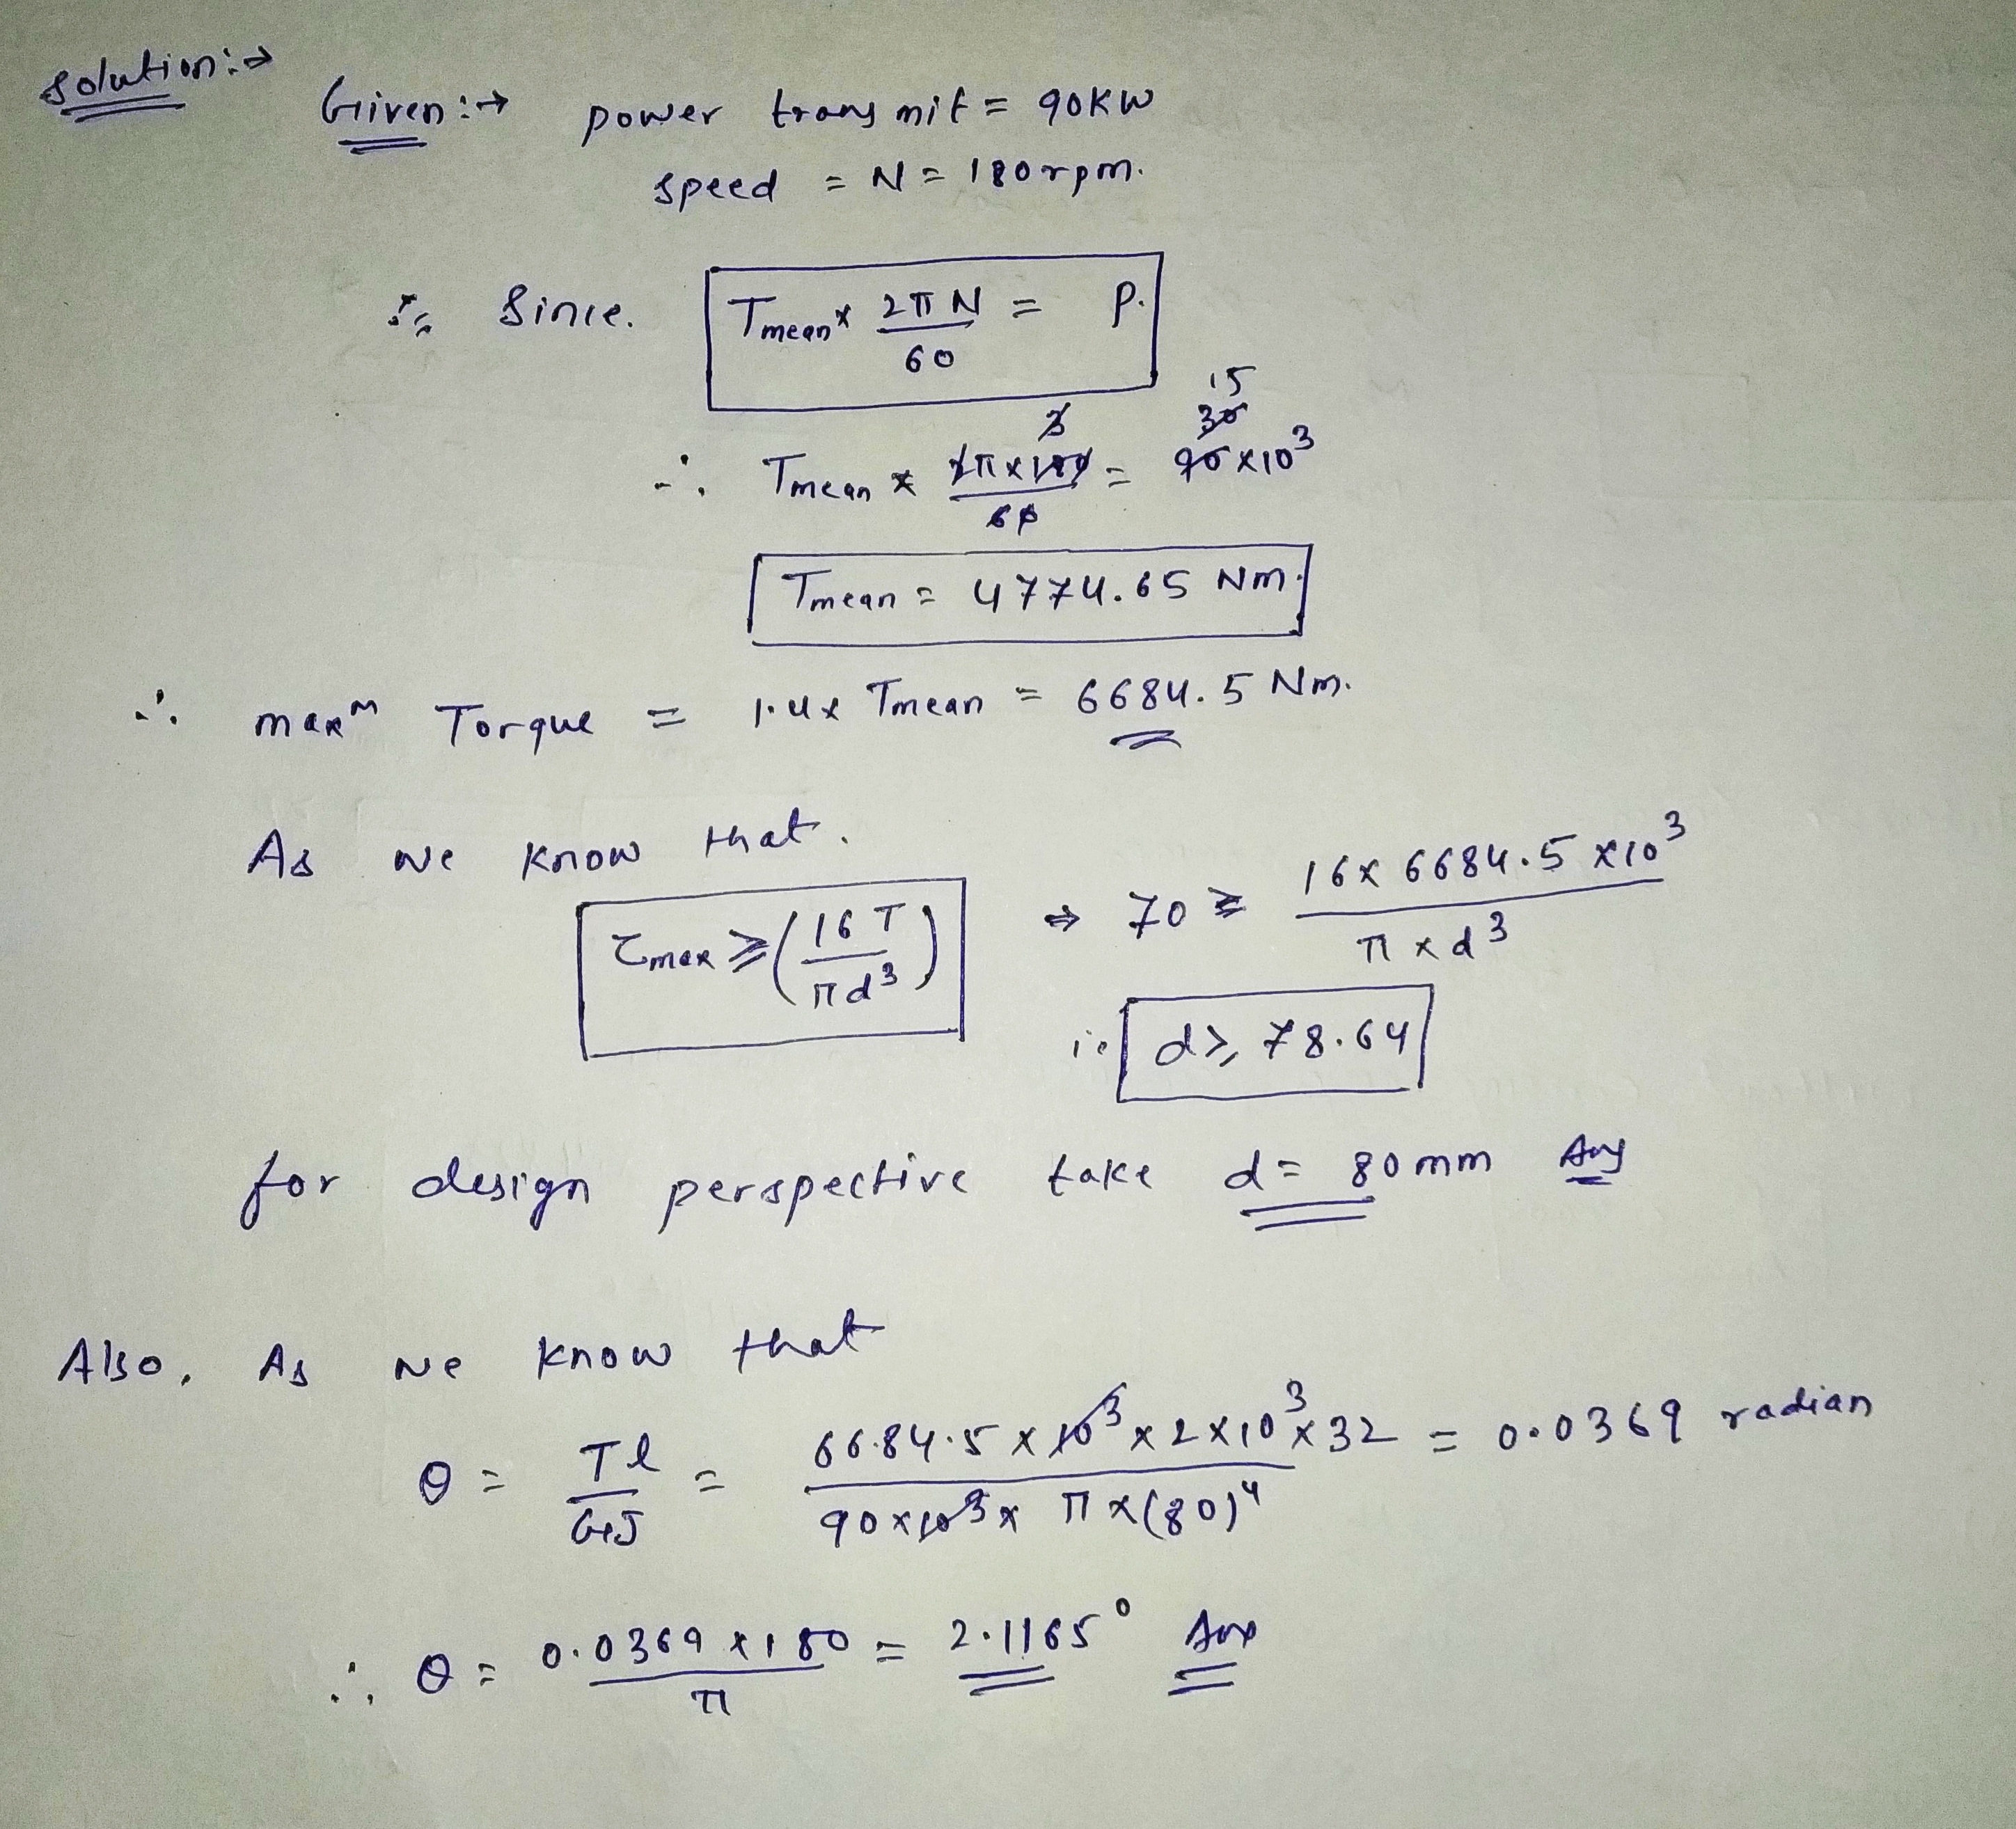 Solution:→
Given:→ power transmit = 90KW
speed = N = 180rpm.
Since. Tmean × 2πN/60 = P.
15
3 30
∴ Tmean × 2π×180/60 = 90×10³
Tmean = 4774.65 Nm.
∴ maxᵐ Torque = 1.4× Tmean = 6684.5 Nm.
As we know that.
τmax ≥ (16T/πd³) ⇒ 70 ≥ 16× 6684.5 ×10³/π×d³
ie d ≥ 78.64
for design perspective take d = 80mm Ans
Also, As we know that
θ = Tl/GJ = 66.84.5 × 10³ × 2×10³×32/90×10³× π×(80)⁴ = 0.0369 radian
∴ θ = 0.0369 ×180/π = 2.1165° Ans